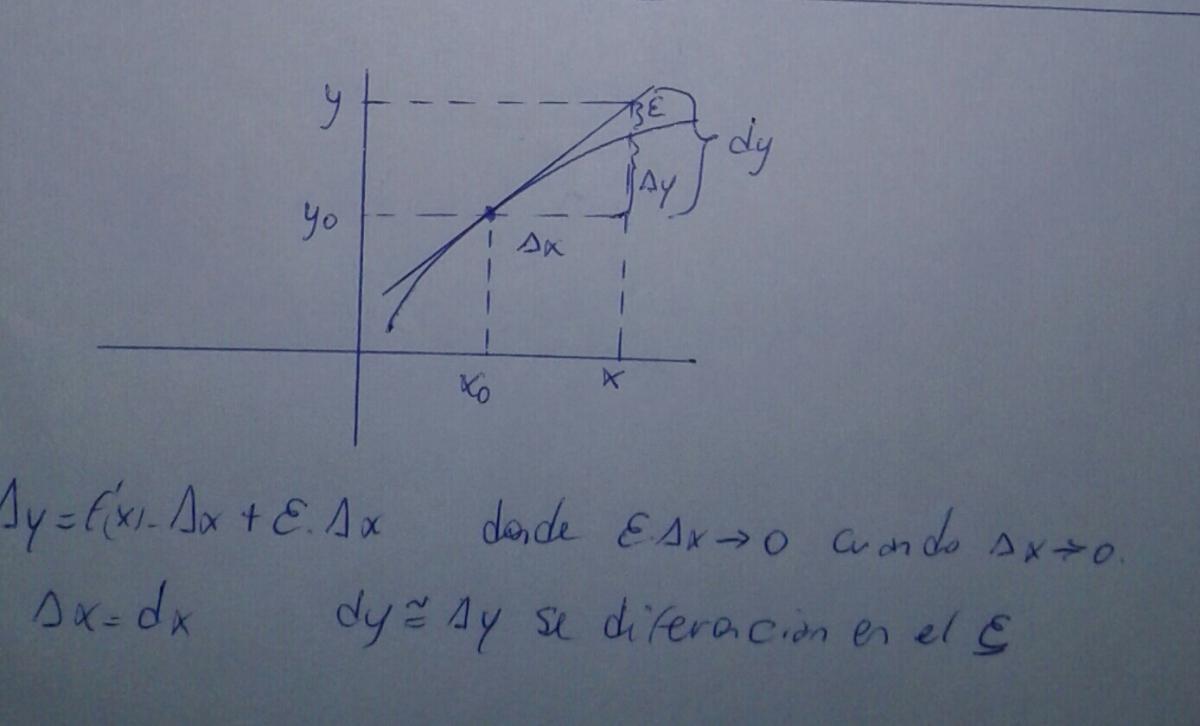 y
ε
dy
Δy
y₀
Δx
x₀
x
Δy = f'(x). Δx + ε. Δx donde ε.Δx → 0 cuando Δx → 0.
Δx = dx dy ≅ Δy se diferacian en el ε